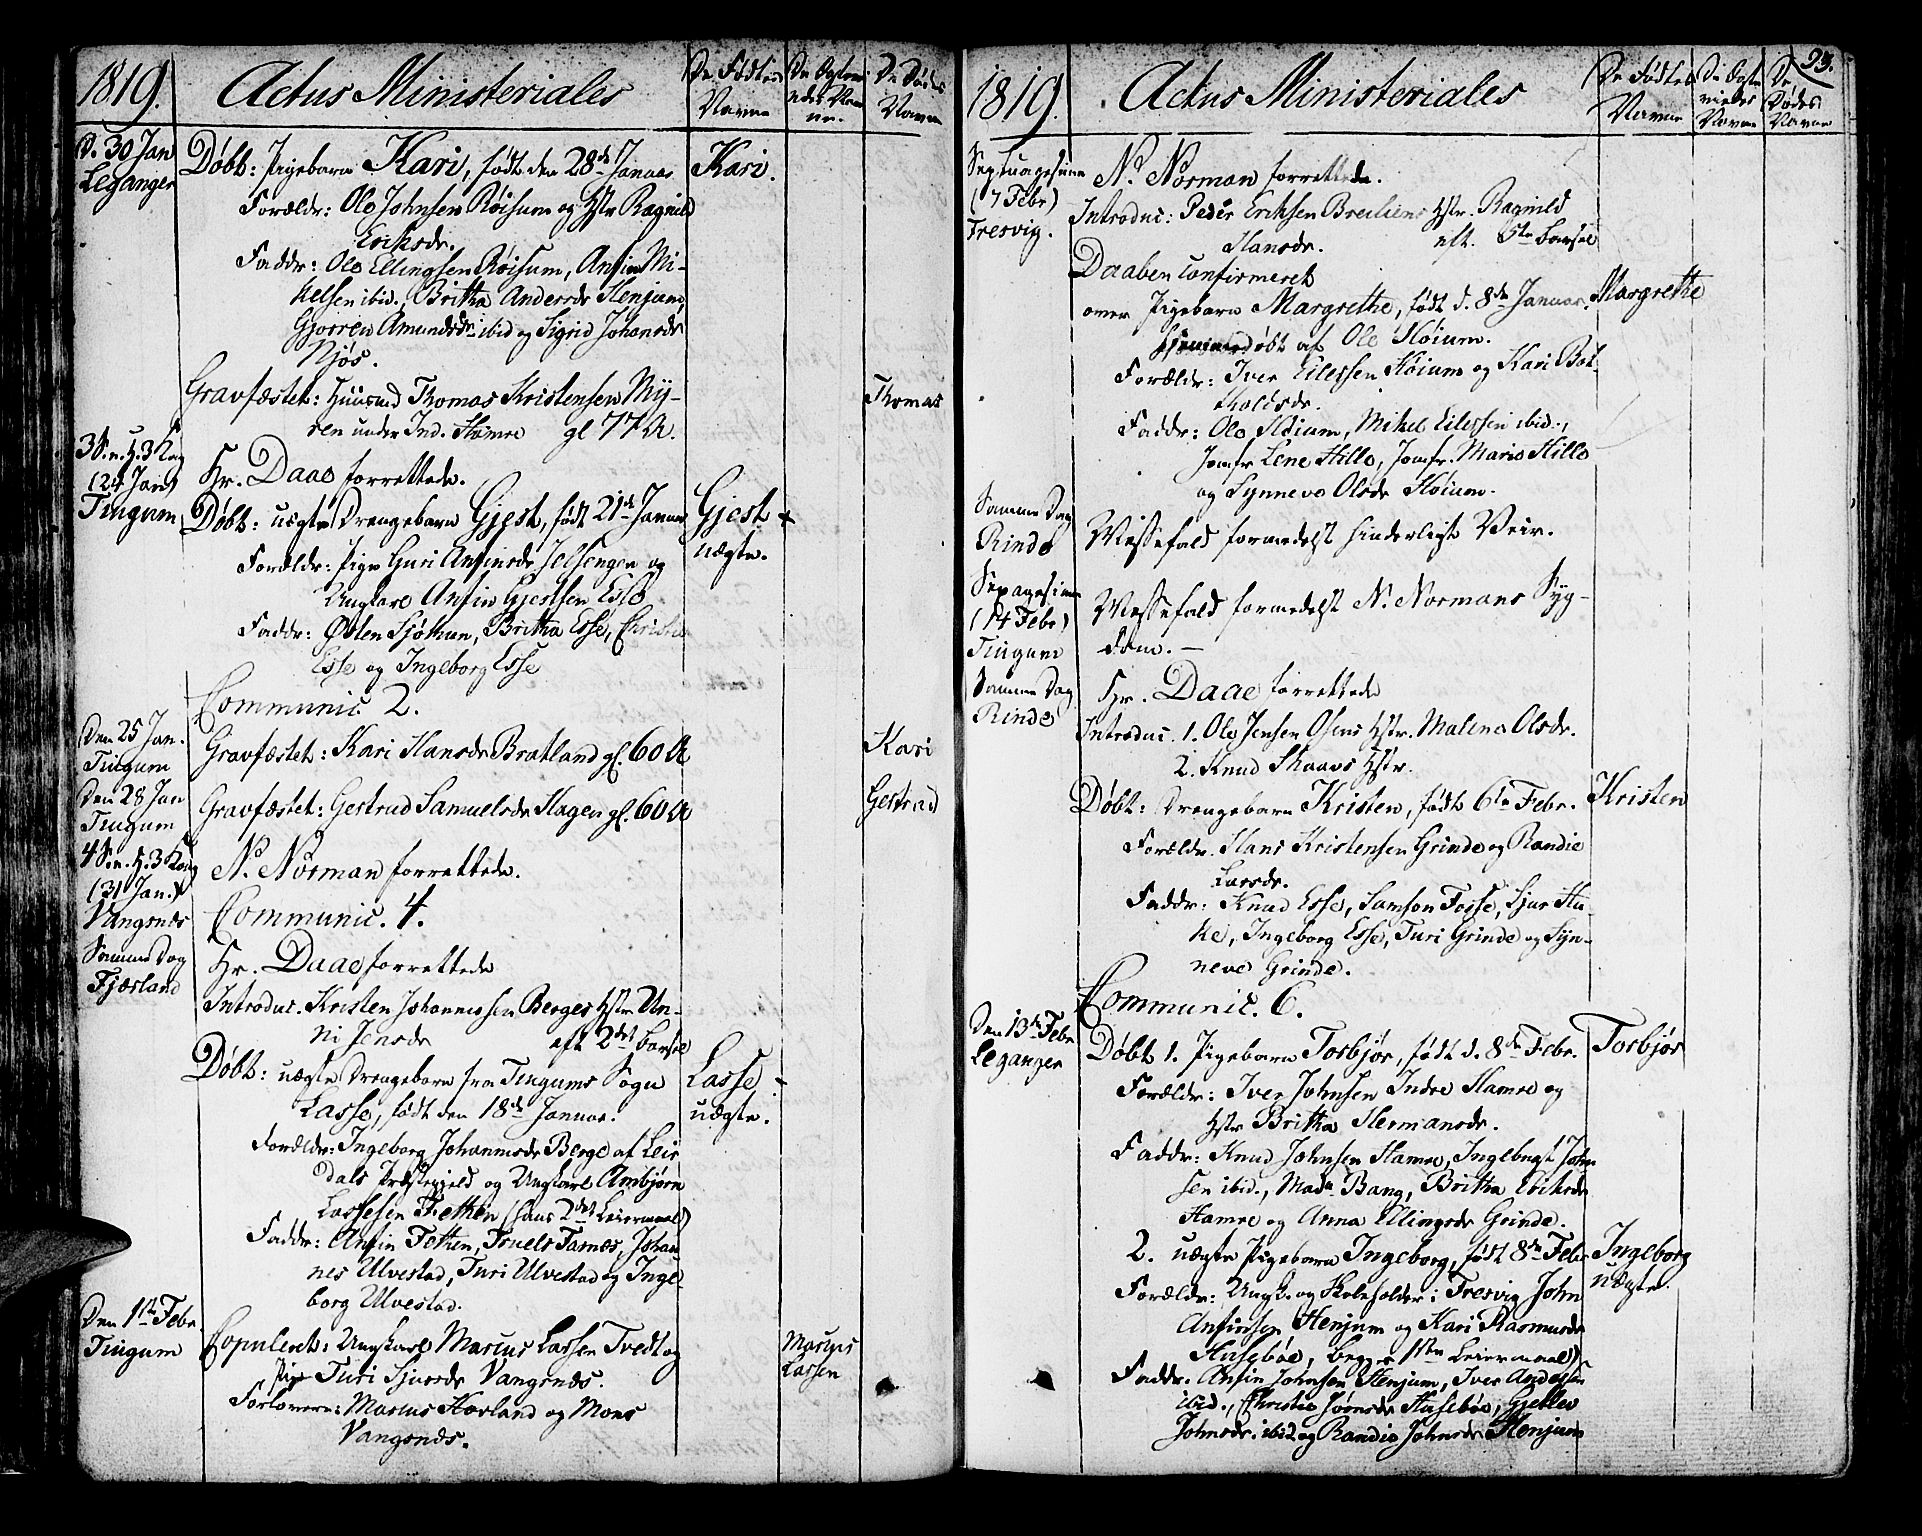 1819. Actus Ministeriales De Fødtes Navne De Døde Navne
D. 30 Jan Leganger
Døbt: Pigebarn Kari, født den 28de Januar Kari.
Forældr: Ole Johnsen Røisum og Hstr Ragnild
Eriksdr.
Faddr: Ole Ellingsen Røisum, Anfin Mi-
kelsen ibid., Britha Andersdr Henjum,
Gjorren Amundsdr ibid og Sigrid Johansdr
Njøs.
Gravfæstet: Huusmd Thomas Kristensen My- Thomas
ren under Ind. Hamre gl 77 A.
3 S. e. H. 3 Kog
(24 Jan) Hr. Daae forrettede.
Tiugum
Døbt: uægte Drengebarn Gjest, født 21de Januar Gjest +
uægte.
Forældr: Pige Guri Anfinsdr og
Ungkarl Anfin Gjestsen Esse
Faddr: Østen Sjøthun, Britha Esse,
Esse og Ingeborg Esse
Communic. 2.
Den 25 Jan.
Tiugum
Gravfæstet: Kari Hansdr Bratland gl. 60 A Kari
Den 28 Jan
Tiugum
Gravfæstet: Gertrud Samuelsdr Hagen gl. 60 A Gertrud
4 S. e. H. 3 Kog
(31 Jan.)
Vangsnæs
N. Norman forrettede.
Communic. 4.
Samme Dag
Fjærland
Hr. Daae forrettede
Introduc. Kristen Johannessen Berges Hstr Un-
ni Jensdr eft 2det Barsel
Døbt: uægte Drengebarn fra Tiugums Sogn Lasse
Lasse, født den 18de Januar. uægte.
Forældr: Ingeborg Johannesdr Berge af Leir
dals Præstegjeld og Ungkarl Ambjørn
Lassesen Fetken (hans 2det Leiermaal)
Faddr: Anfin Fetken, Truels Farnes, Johan
nes Ulvestad, Turi Ulvestad og Inge
borg Ulvestad.
Den 1ste Febr.
Tiugum
Copuleret: Ungkarl Marcus Lassen Tvedt og Marcus
Pige Turi Sjursdr Vangsnæs. Lassen
Forlovere: Marcus Hovland og Mons
Vangsnæs.
1819. Actus Ministeriales De Fødtes Navne De Døde Navne 93.
Septuagesima
(7 Febr)
Fresvig.
N. Norman forrettede.
Introduc: Peder Eriksen Hstr. Ragnild
Hansdr. eft. 5te Barsel
Daaben confirmeret
over Pigebarn Margrethe, født d. 8de Januar. Margrethe
hjemmedøbt af Ole Høium.
Forældr: Iver Eilessen Høium og Kari Bot-
tholdsdr.
Faddr: Ole Høium, Mikel Eilessen ibid.,
Jomfr Lene Hille, Jomfr. Marie Hille
og Synneve Olsdr Høium.
Samme Dag
Rinde
Messefald formedelst hinderligt Veir.
Sexagesima
(14 Febr)
Tiugum
Messefald formedelst N. Normans Syg-
dom. —
Samme Dag
Rinde
Hr. Daae forrettede
Introduc. 1. Ole Jensen Hstr. Malena Olsdr.
2. Knud Skaars Hstr.
Døbt: Drengebarn Kristen, født 6te Febr. Kristen
Forældr. Hans Kristensen Grinde og Randie
Larsdr.
Faddr: Knud Esse, Samson Fosse, Sjur Hu-
ke, Ingeborg Esse, Turi Grinde og Syn-
neve Grinde.
Communic. 6.
Den 13de Febr
Leganger
Døbt 1. Pigebarn Torbjør, født d. 8de Febr. Torbjør
Forældr: Iver Johnsen Indre Hamre og
Hstr Britha Hermansdr.
Faddr: Knud Johnsen Hamre, Ingebregt John
sen ibid., Madm Bang, Britha Eriksdr
Hamre og Anna Ellingsdr Grinde.
2. uægte Pigebarn Ingeborg, født 8de Febr Ingeborg
uægte.
Forældr: Ungk. og Skoleholder i Fresvig John
Anfinsen Henjum og Kari Rasmusdr
Husebøe, begges 1ste Leiermaal)
Faddr. Anfin Johnsen Henjum, Iver Andersen
ibid., Christie Jørnsdr Husebøe, Gjetlev
Johnsdr. ibid og Randie Johnsdr Henjum